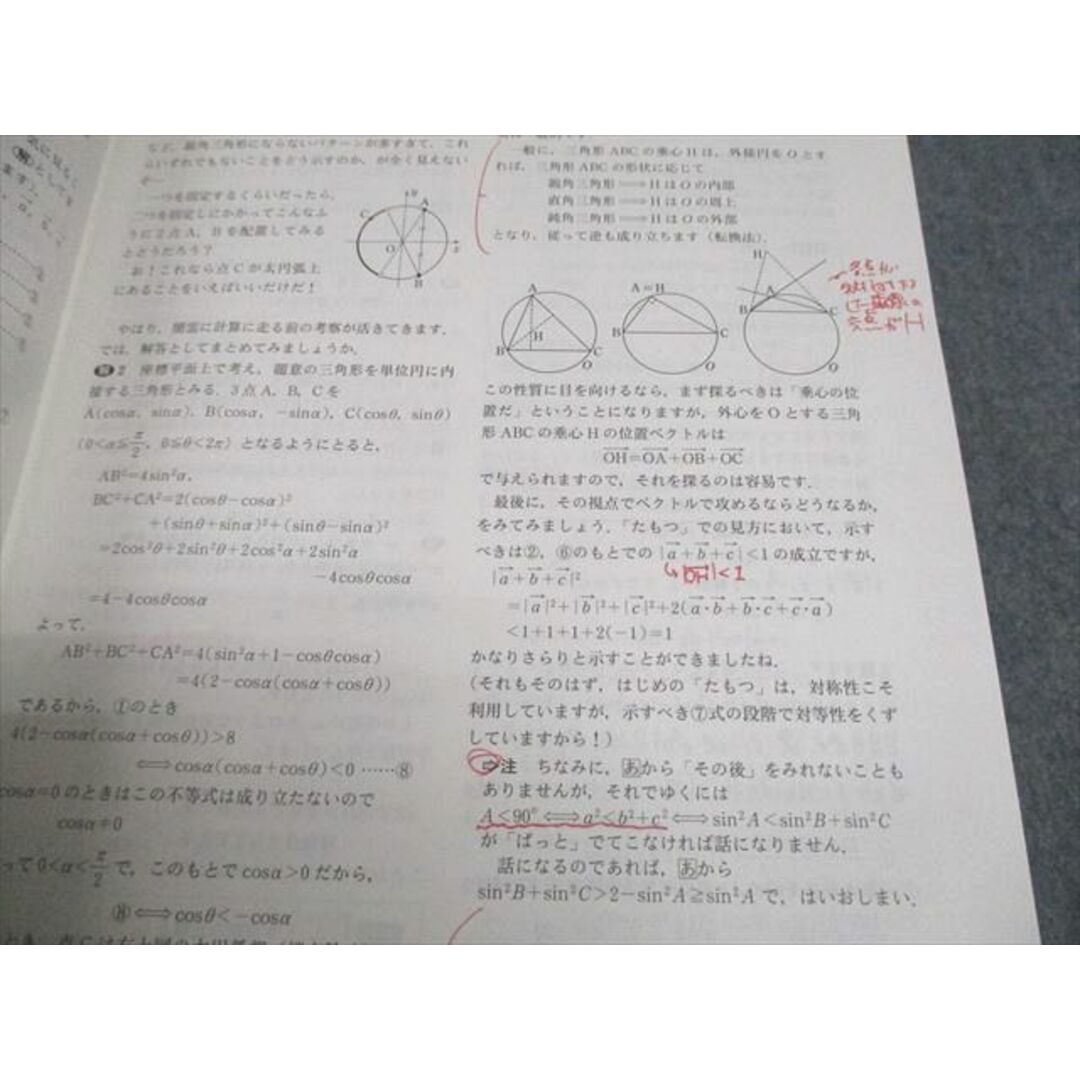 など，鋭角三角形にならないパターンが多すぎて，これ
らいずれでもないことをどう示すのか，が全く見えない
ぞ…
一つを固定するくらいだったら，
二つを固定しにかかってこんなふ
うに2点A，Bを配置してみる
とどうだろう？
お！これなら点Cが太円弧上
にあることをいえばいいだけだ！
y
A
C
O
x
B
やはり，闇雲に計算に走る前の考察が活きてきます．
では，解答としてまとめてみましょうか．
解2 座標平面上で考え，題意の三角形を単位円に内
接する三角形とみる．3点A，B，Cを
A(cosα, sinα)，B(cosα, −sinα)，C(cosθ, sinθ)
(0<α≦π/2，0≦θ<2π) となるようにとると，
AB²=4sin²α，
BC²+CA²=2(cosθ−cosα)²
+(sinθ+sinα)²+(sinθ−sinα)²
=2cos²θ+2sin²θ+2cos²α+2sin²α
−4cosθcosα
=4−4cosθcosα
よって，
AB²+BC²+CA²=4(sin²α+1−cosθcosα)
=4(2−cosα(cosα+cosθ))
であるから，①のとき
4(2−cosα(cosα+cosθ))>8
⟺cosα(cosα+cosθ)<0 ……⑧
cosα=0のときはこの不等式は成り立たないので
cosα≠0
って0<α<π/2で，このもとでcosα>0だから，
⑧⟺cosθ<−cosα
一般に，三角形ABCの垂心Hは，外接円をOとす
れば，三角形ABCの形状に応じて
鋭角三角形⟹HはOの内部
直角三角形⟹HはOの周上
鈍角三角形⟹HはOの外部
となり，従って逆も成り立ちます（転換法）．
A
H
B
C
O
A=H
B
C
O
H
A
B
C
O
この性質に目を向けるなら，まず探るべきは「垂心の位
置だ」ということになりますが，外心をOとする三角
形ABCの垂心Hの位置ベクトルは
OH=OA+OB+OC
で与えられますので，それを探るのは容易です．
最後に，その視点でベクトルで攻めるならどうなるか，
をみてみましょう．「たもつ」での見方において，示す
べきは②，⑥のもとでの |a+b+c|<1の成立ですが，
↳|OH|<1
|a+b+c|²
=|a|²+|b|²+|c|²+2(a·b+b·c+c·a)
<1+1+1+2(−1)=1
かなりさらりと示すことができましたね．
（それもそのはず，はじめの「たもつ」は，対称性こそ
利用していますが，示すべき⑦式の段階で対等性をくず
していますから！）
⇨注 ちなみに，あから「その後」をみれないことも
ありませんが，それでゆくには
A<90°⟺a²<b²+c²⟺sin²A<sin²B+sin²C
が「ぱっと」でてこなければ話になりません．
話になるのであれば，あから
sin²B+sin²C>2−sin²A≧sin²Aで，はいおしまい．